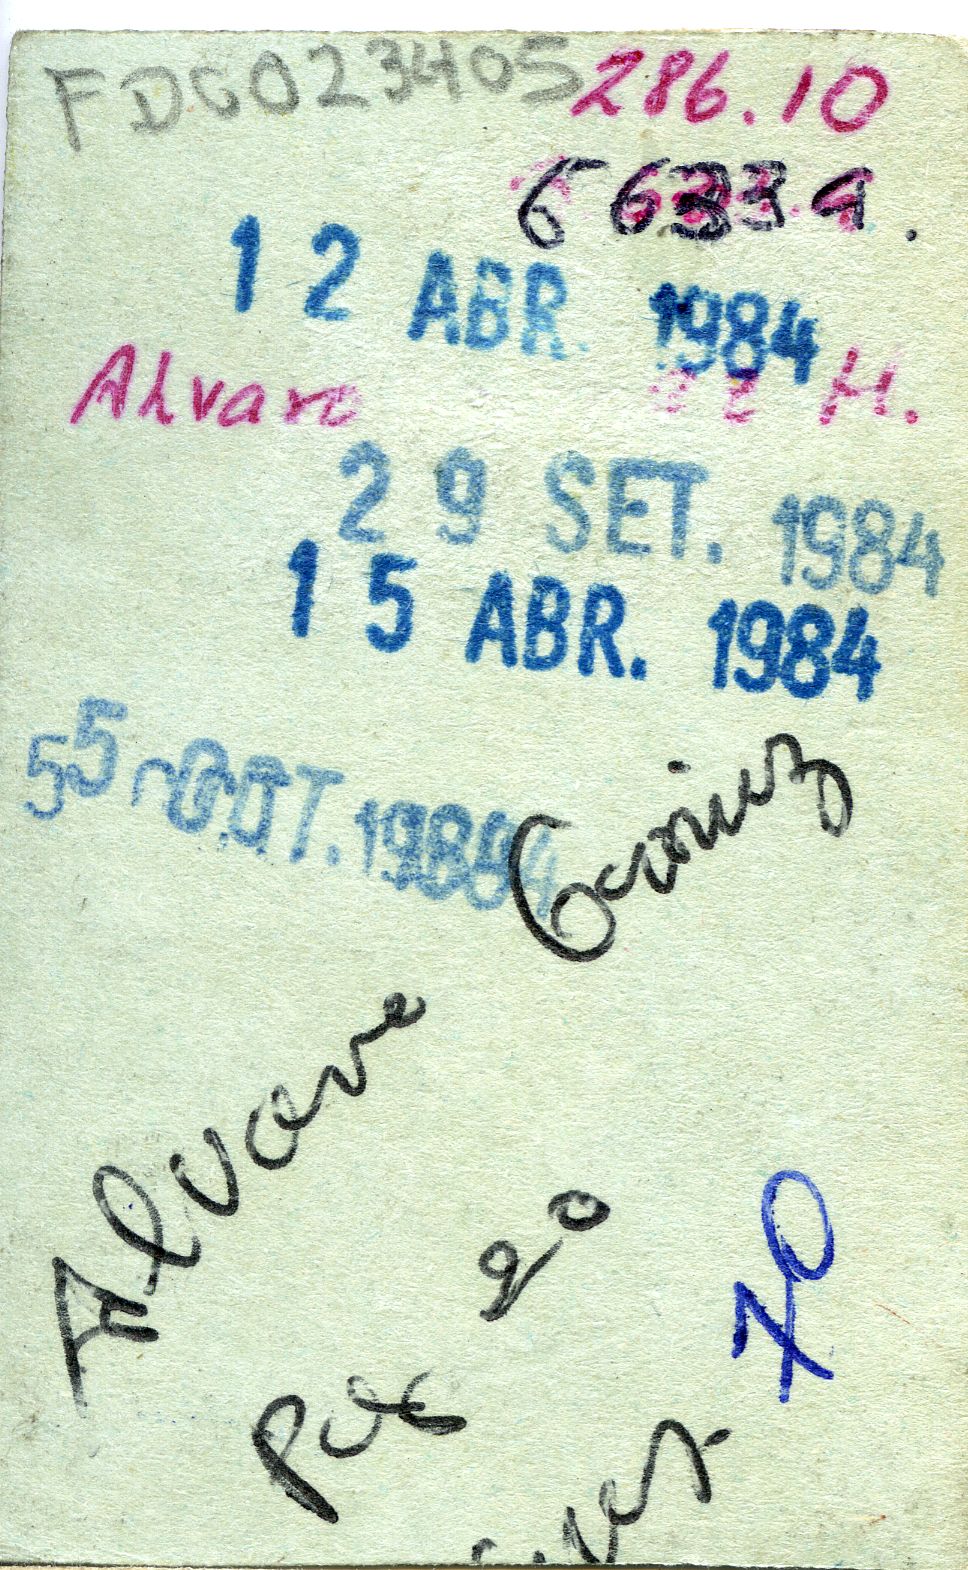 FDC023405 286.10
66334.
12 ABR. 1984
Alvaro H.
29 SET. 1984
15 ABR. 1984
5 OUT. 1984
Alvaro
20
70